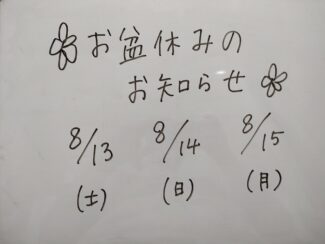 お盆休みの
お知らせ
8/13 8/14 8/15
(土) (日) (月)